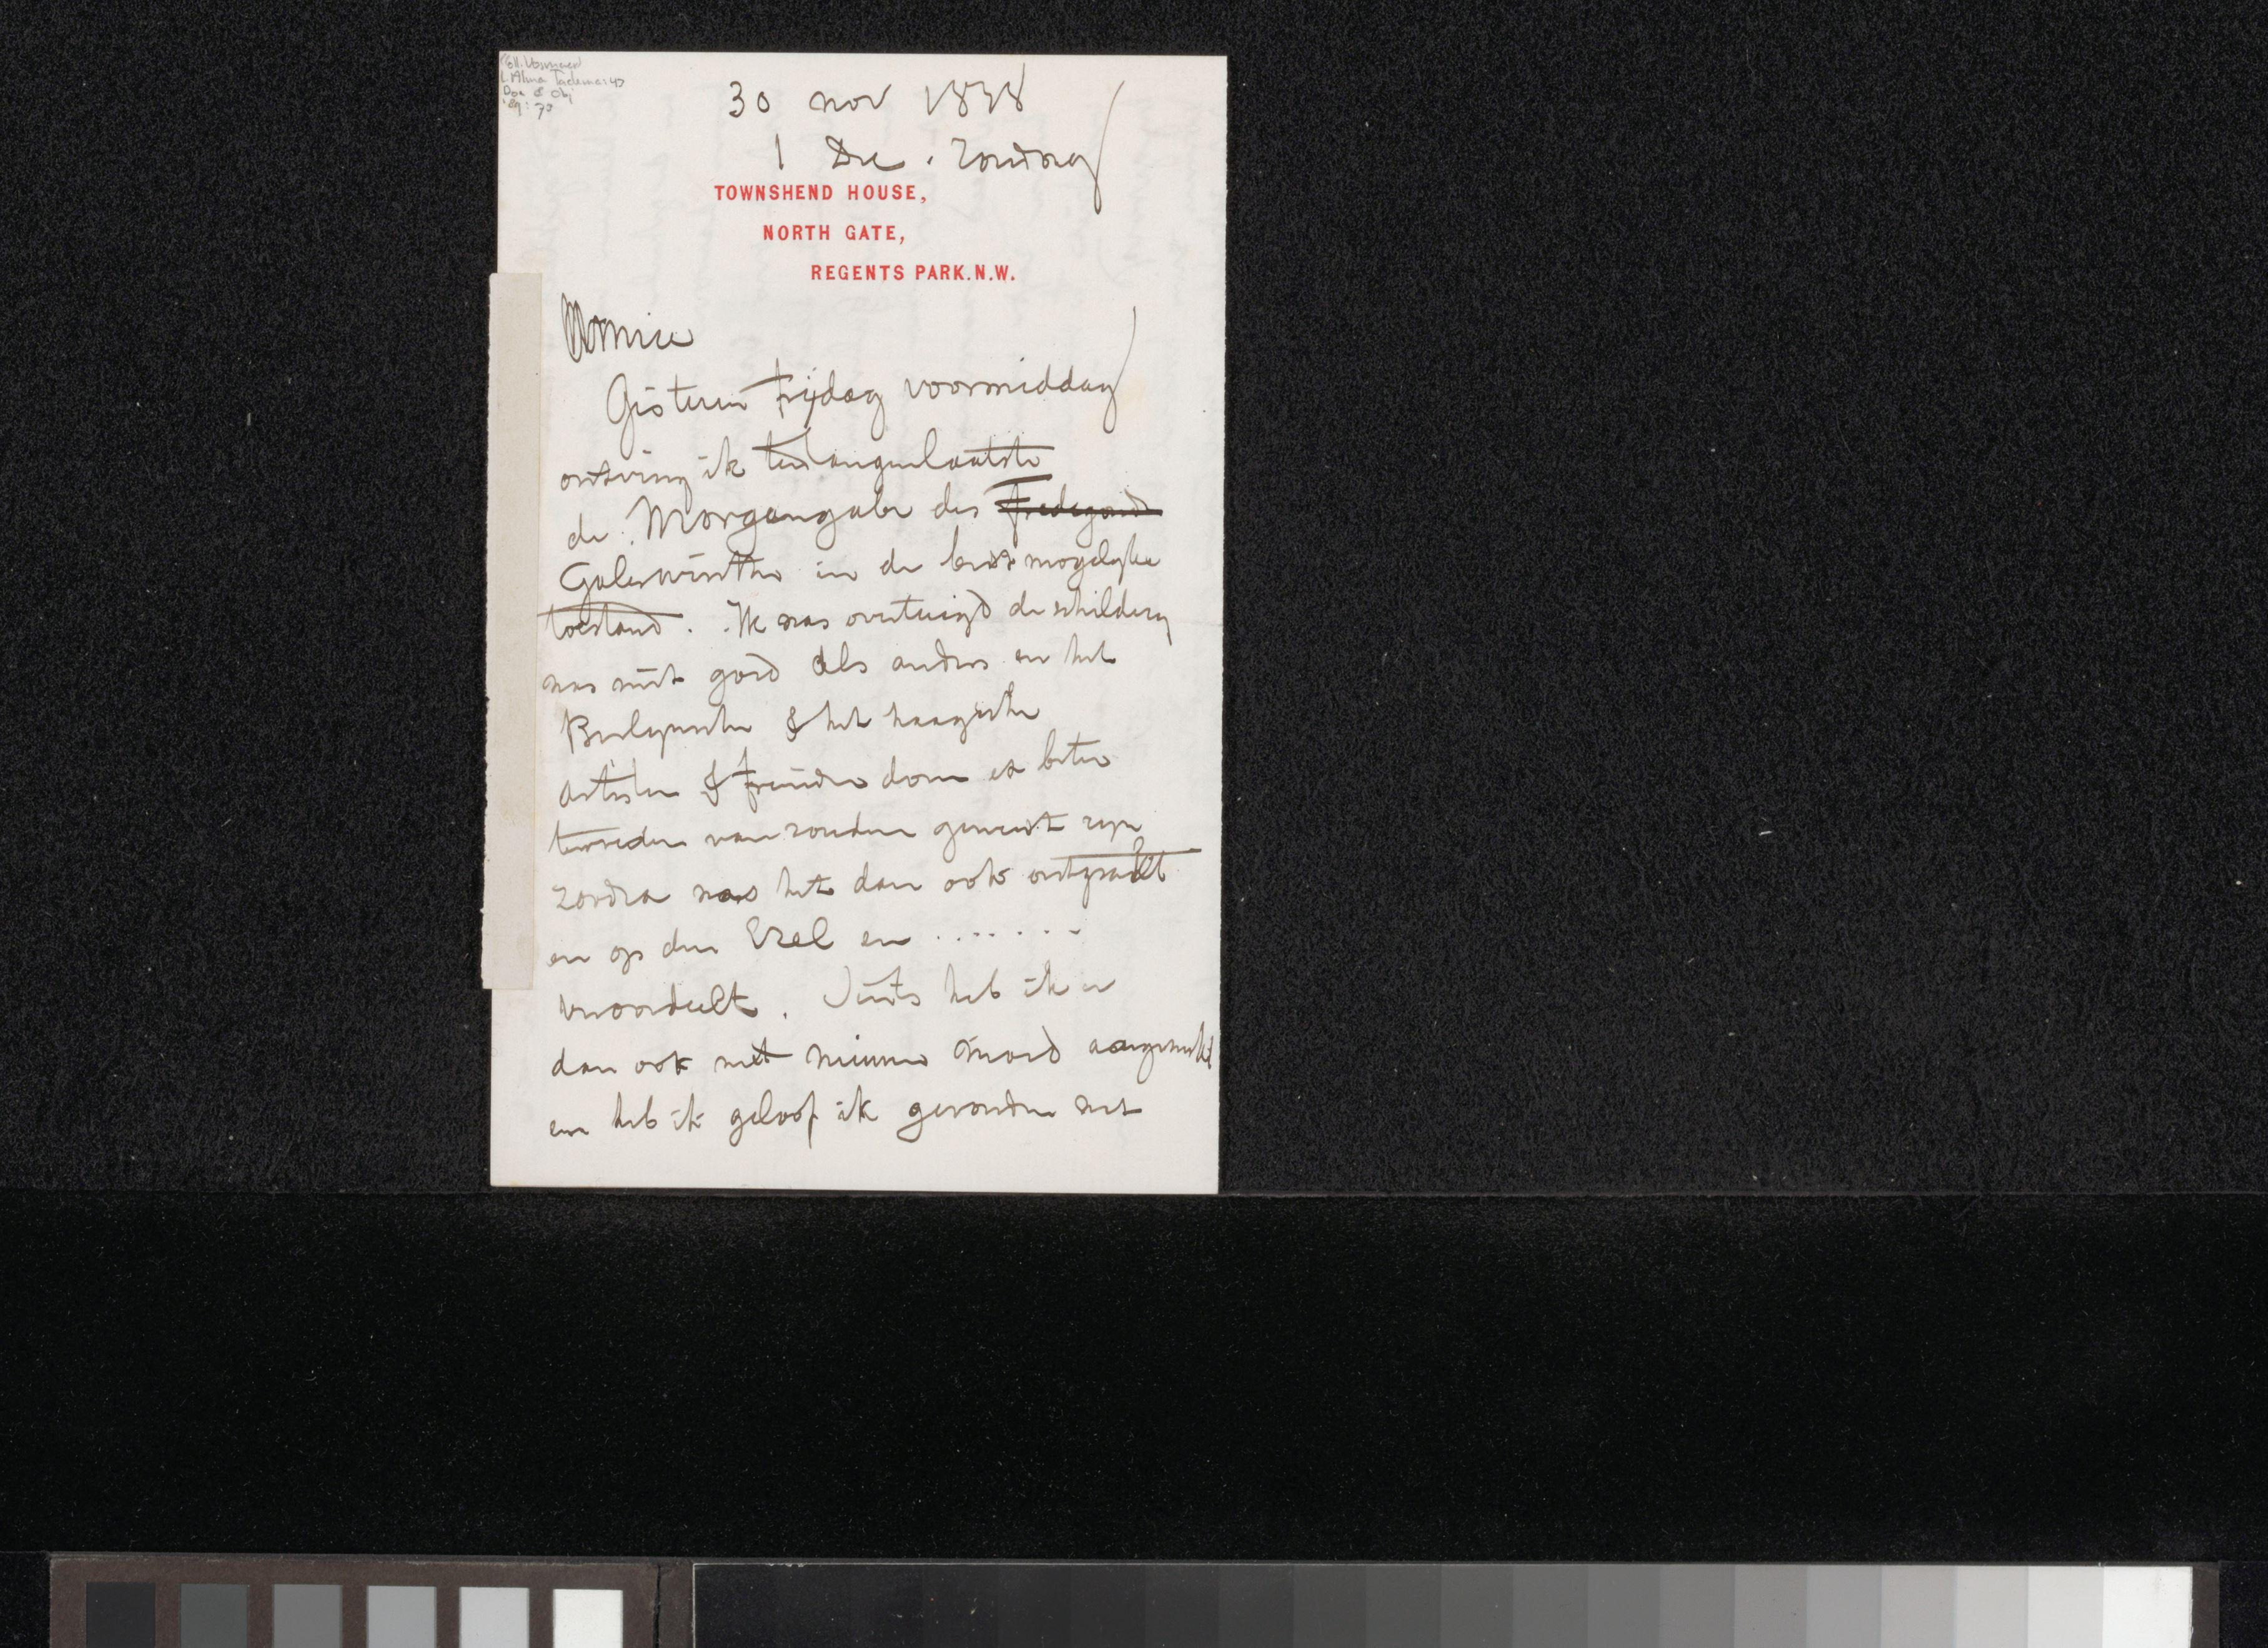 Coll. Vosmaer
L. Alma Tadema: 43
Doc & Obj
'89: 70
30 nov 1878
1 Dec. Zondag
TOWNSHEND HOUSE,
NORTH GATE,
REGENTS PARK.N.W.
Gisteren frijdag voormiddag
ontving ik ten langenlaatste
de Morgengabe des Fredegond
Galeswinthe in de best mogelyke
toestand. Ik was overtuigd de schildery
was niet goed als anders en het
Belgische & het haagsche
artisten & frienden dom er beter
tevreden van zouden geweest zyn
zoodra was het dan ook ontpakt
en op den Ezel en .......
veroordeelt. Juists heb ik er
dan ook met nieuwe moed aangewerkt
en heb ik geloof ik gevonden wat